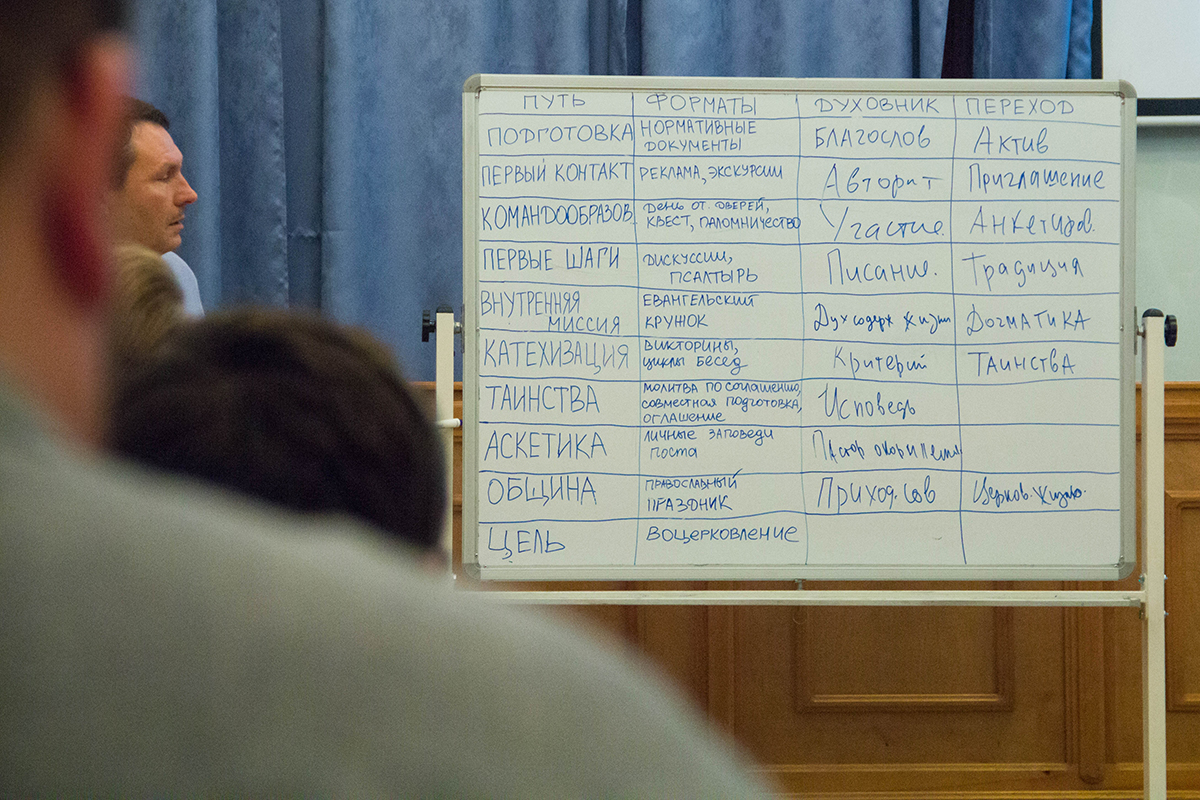 ПУТЬ ФОРМАТЫ ДУХОВНИК ПЕРЕХОД
ПОДГОТОВКА НОРМАТИВНЫЕ ДОКУМЕНТЫ БЛАГОСЛОВ АКТИВ
ПЕРВЫЙ КОНТАКТ РЕКЛАМА, ЭКСКУРСИИ Авторит Приглашение
КОМАНДООБРАЗОВ. ДЕНЬ ОТ. ДВЕРЕЙ, КВЕСТ, ПАЛОМНИЧЕСТВО Участие. Анкетиров.
ПЕРВЫЕ ШАГИ ДИСКУССИИ, ПСАЛТЫРЬ Писание. Традиция
ВНУТРЕННЯЯ МИССИЯ ЕВАНГЕЛЬСКИЙ КРУЖОК Дух содерж жизни ДОГМАТИКА
КАТЕХИЗАЦИЯ ВИКТОРИНЫ, ЦИКЛЫ БЕСЕД Критерий ТАИНСТВА
ТАИНСТВА МОЛИТВА ПО СОГЛАШЕНИЮ, СОВМЕСТНАЯ ПОДГОТОВКА, ОГЛАШЕНИЕ Исповедь
АСКЕТИКА ЛИЧНЫЕ ЗАПОВЕДИ ПОСТА Пастор
ОБЩИНА ПРАВОСЛАВНЫЙ ПРАЗДНИК Приход. сов Церков. жизнь.
ЦЕЛЬ ВОЦЕРКОВЛЕНИЕ